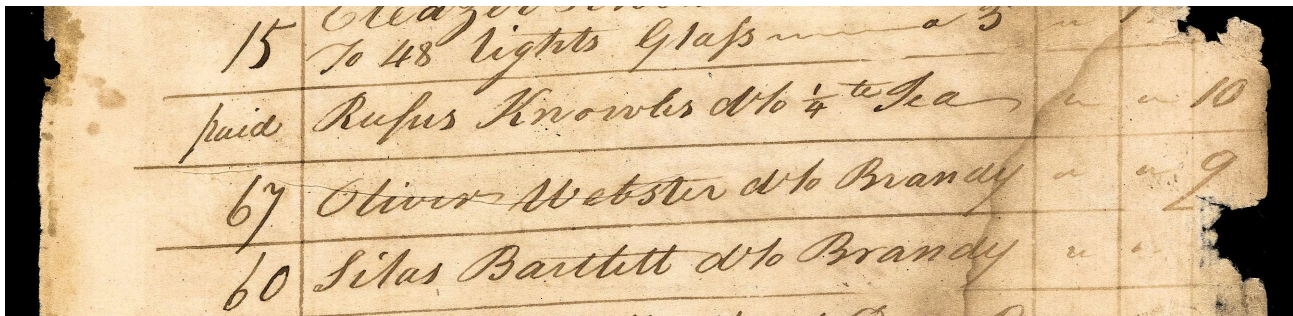 Eleazer
15 To 48 lights Glass a 3 "
paid Rufus Knowles d to 1/4 lb Tea " " 10
67 Oliver Webster d to Brandy " " 9
60 Silas Bartlett d to Brandy " "